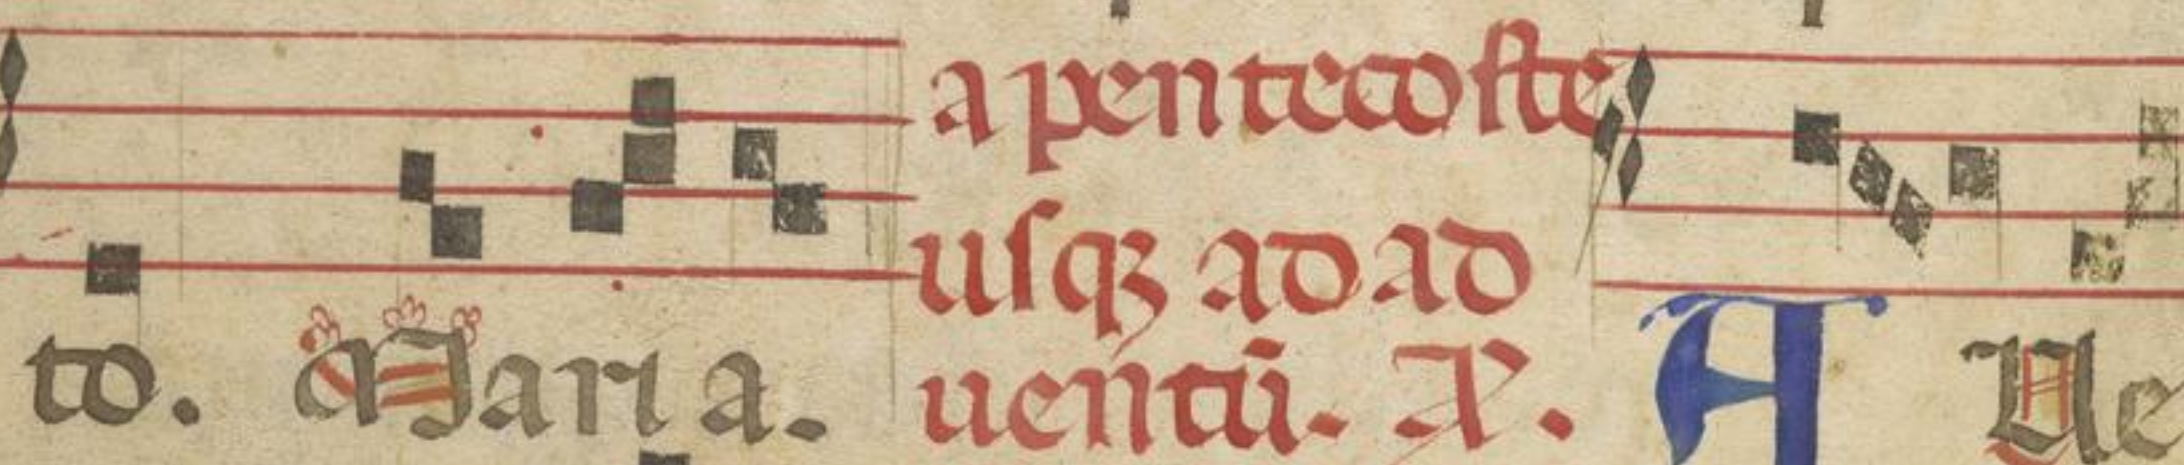 to. Maria.
a pentecoste
usqꝫ ad ad
uentū. A.
A Ue